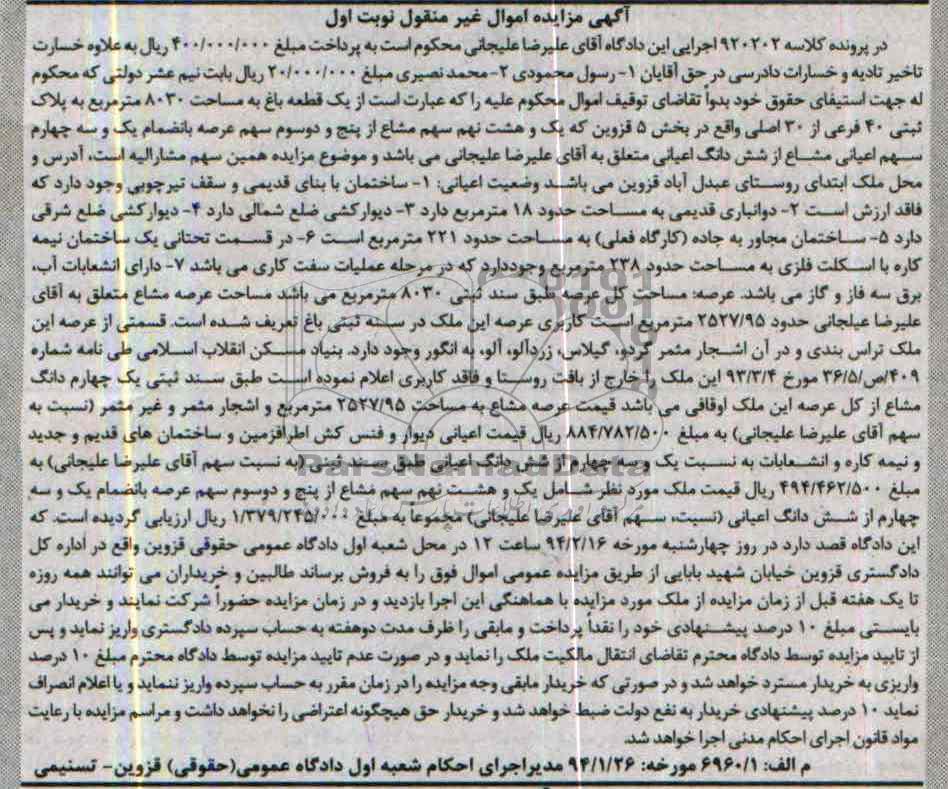 آگهی مزایده اموال غیر منقول نوبت اول
در پرونده کلاسه ۹۲۰۲۰۲ اجرایی این دادگاه آقای علیرضا علیجانی محکوم است به پرداخت مبلغ ۴۰۰/۰۰۰/۰۰۰ ریال به علاوه خسارت
تاخیر تادیه و خسارات دادرسی در حق آقایان ۱- رسول محمودی ۲- محمد نصیری مبلغ ۲۰/۰۰۰/۰۰۰ ریال بابت نیم عشر دولتی که محکوم
له جهت استیفای حقوق خود بدواً تقاضای توقیف اموال محکوم علیه را که عبارت است از یک قطعه باغ به مساحت ۸۰۳۰ مترمربع به پلاک
ثبتی ۴۰ فرعی از ۳۰ اصلی واقع در بخش ۵ قزوین که یک و هشت نهم سهم مشاع از پنج و دوسوم سهم عرصه بانضمام یک و سه چهارم
سهم اعیانی مشاع از شش دانگ اعیانی متعلق به آقای علیرضا علیجانی می باشد و موضوع مزایده همین سهم مشارالیه است، آدرس و
محل ملک ابتدای روستای عبدل آباد قزوین می باشد وضعیت اعیانی: ۱- ساختمان با بنای قدیمی و سقف تیرچوبی وجود دارد که
فاقد ارزش است ۲- دوانباری قدیمی به مساحت حدود ۱۸ مترمربع دارد ۳- دیوارکشی ضلع شمالی دارد ۴- دیوارکشی ضلع شرقی
دارد ۵- ساختمان مجاور به جاده (کارگاه فعلی) به مساحت حدود ۲۲۱ مترمربع است ۶- در قسمت تحتانی یک ساختمان نیمه
کاره با اسکلت فلزی به مساحت حدود ۲۳۸ مترمربع وجوددارد که در مرحله عملیات سفت کاری می باشد ۷- دارای انشعابات آب،
برق سه فاز و گاز می باشد. عرصه: مساحت کل عرصه طبق سند ثبتی ۸۰۳۰ مترمربع می باشد مساحت عرصه مشاع متعلق به آقای
علیرضا عیلجانی حدود ۲۵۲۷/۹۵ مترمربع است کاربری عرصه این ملک در سند ثبتی باغ تعریف شده است. قسمتی از عرصه این
ملک تراس بندی و در آن اشجار مثمر گردو، گیلاس، زردآلو، آلو، به انگور وجود دارد. بنیاد مسکن انقلاب اسلامی طی نامه شماره
۴۰۹/ص/۳۶/۵ مورخ ۹۳/۳/۴ این ملک را خارج از بافت روستا و فاقد کاربری اعلام نموده است طبق سند ثبتی یک چهارم دانگ
مشاع از کل عرصه این ملک اوقافی می باشد قیمت عرصه مشاع به مساحت ۲۵۲۷/۹۵ مترمربع و اشجار مثمر و غیر مثمر (نسبت به
سهم آقای علیرضا علیجانی) به مبلغ ۸۸۴/۷۸۲/۵۰۰ ریال قیمت اعیانی دیوار و فنس کش اطرافزمین و ساختمان های قدیم و جدید
و نیمه کاره و انشعابات به نسبت یک و سه چهارم از شش دانگ اعیانی طبق سند ثبتی (به نسبت سهم آقای علیرضا علیجانی) به
مبلغ ۴۹۴/۴۶۲/۵۰۰ ریال قیمت ملک مورد نظر شامل یک و هشت نهم سهم مشاع از پنج و دوسوم سهم عرصه بانضمام یک و سه
چهارم از شش دانگ اعیانی (نسبت، سهم آقای علیرضا علیجانی) مجموعاً به مبلغ ۱/۳۷۹/۲۴۵/۰۰۰ ریال ارزیابی گردیده است. که
این دادگاه قصد دارد در روز چهارشنبه مورخه ۹۴/۲/۱۶ ساعت ۱۲ در محل شعبه اول دادگاه عمومی حقوقی قزوین واقع در اداره کل
دادگستری قزوین خیابان شهید بابایی از طریق مزایده عمومی اموال فوق را به فروش برساند طالبین و خریداران می توانند همه روزه
تا یک هفته قبل از زمان مزایده از ملک مورد مزایده با هماهنگی این اجرا بازدید و در زمان مزایده حضوراً شرکت نمایند و خریدار می
بایستی مبلغ ۱۰ درصد پیشنهادی خود را نقداً پرداخت و مابقی را ظرف مدت دوهفته به حساب سپرده دادگستری واریز نماید و پس
از تایید مزایده توسط دادگاه محترم تقاضای انتقال مالکیت ملک را نماید و در صورت عدم تایید مزایده توسط دادگاه محترم مبلغ ۱۰ درصد
واریزی به خریدار مسترد خواهد شد و در صورتی که خریدار مابقی وجه مزایده را در زمان مقرر به حساب سپرده واریز ننماید و یا اعلام انصراف
نماید ۱۰ درصد پیشنهادی خریدار به نفع دولت ضبط خواهد شد و خریدار حق هیچگونه اعتراضی را نخواهد داشت و مراسم مزایده با رعایت
مواد قانون اجرای احکام مدنی اجرا خواهد شد.
م الف: ۶۹۶۰/۱ مورخه: ۹۴/۱/۲۶ مدیراجرای احکام شعبه اول دادگاه عمومی(حقوقی) قزوین- تسنیمی
ParsNamadData